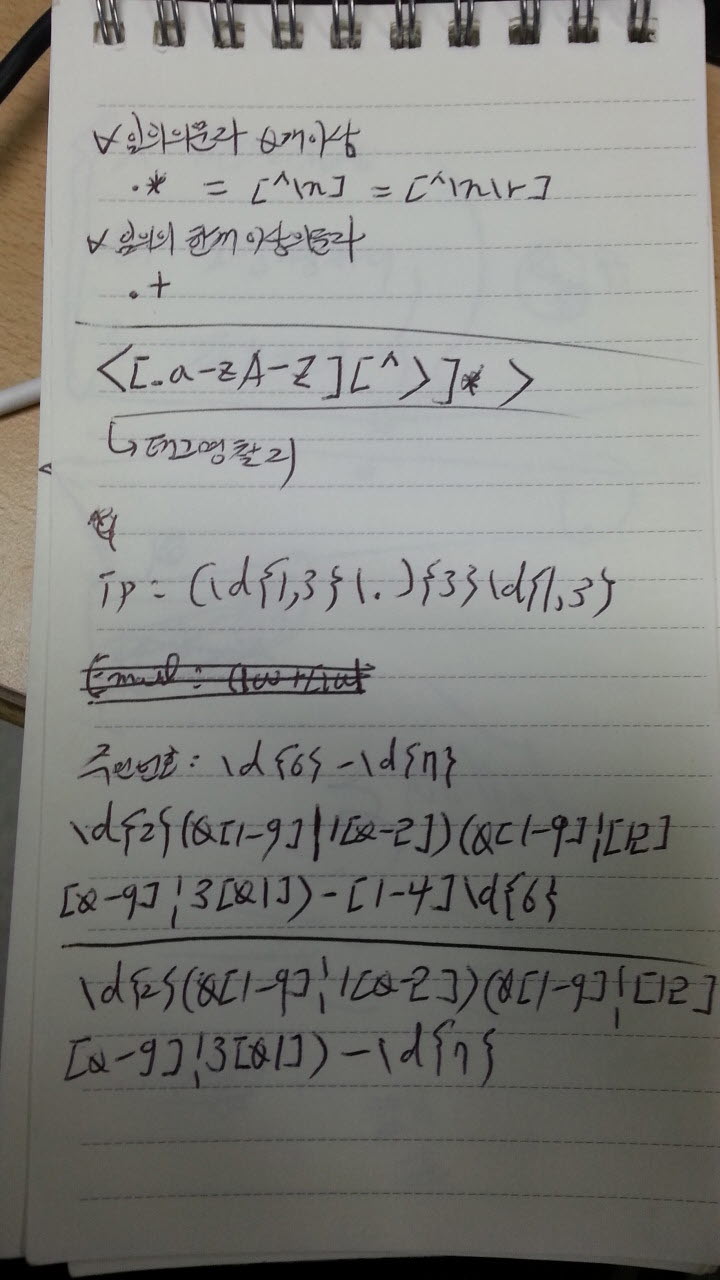 ∀ 임의의문자 0개이상
.* = [^\n] = [^\n\r]
∀ 임의의 한개 이상의문자
.+
<[.a-zA-Z][^>]*>
↳ 태그명찰리
IP = (\d{1,3}\.){3}\d{1,3}
주민번호: \d{6}-\d{7}
\d{2}(0[1-9]|1[0-2])(0[1-9]|[12]
[0-9]|3[01])-[1-4]\d{6}
\d{2}(0[1-9]|1[0-2])(0[1-9]|[12]
[0-9]|3[01])-\d{7}